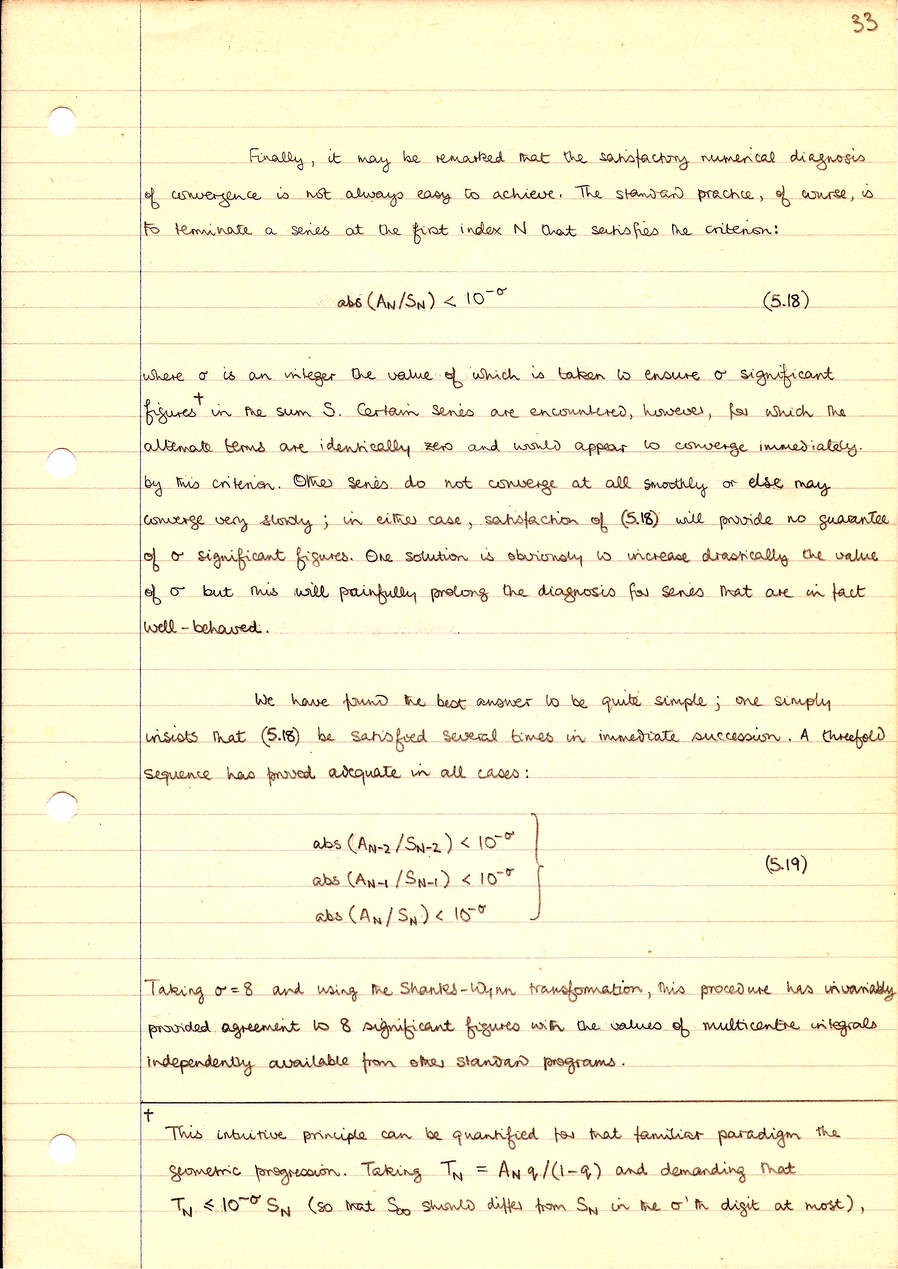 33
Finally, it may be remarked that the satisfactory numerical diagnosis
of convergence is not always easy to achieve. The standard practice, of course, is
to terminate a series at the first index N that satisfies the criterion:
abs (A_N/S_N) < 10^-σ (5.18)
where σ is an integer the value of which is taken to ensure σ significant
figures† in the sum S. Certain series are encountered, however, for which the
alternate terms are identically zero and would appear to converge immediately.
by this criterion. Other series do not converge at all smoothly or else may
converge very slowly; in either case, satisfaction of (5.18) will provide no guarantee
of σ significant figures. One solution is obviously to increase drastically the value
of σ but this will painfully prolong the diagnosis for series that are in fact
well-behaved.
We have found the best answer to be quite simple; one simply
insists that (5.18) be satisfied several times in immediate succession. A threefold
sequence has proved adequate in all cases:
abs (A_N-2/S_N-2) < 10^-σ
abs (A_N-1/S_N-1) < 10^-σ (5.19)
abs (A_N/S_N) < 10^-σ
Taking σ=8 and using the Shanks-Wynn transformation, this procedure has invariably
provided agreement to 8 significant figures with the values of multicentre integrals
independently available from other standard programs.
†
This intuitive principle can be quantified for that familiar paradigm the
geometric progression. Taking T_N = A_N q/(1-q) and demanding that
T_N ≤ 10^-σ S_N (so that S_∞ should differ from S_N in the σ'th digit at most),